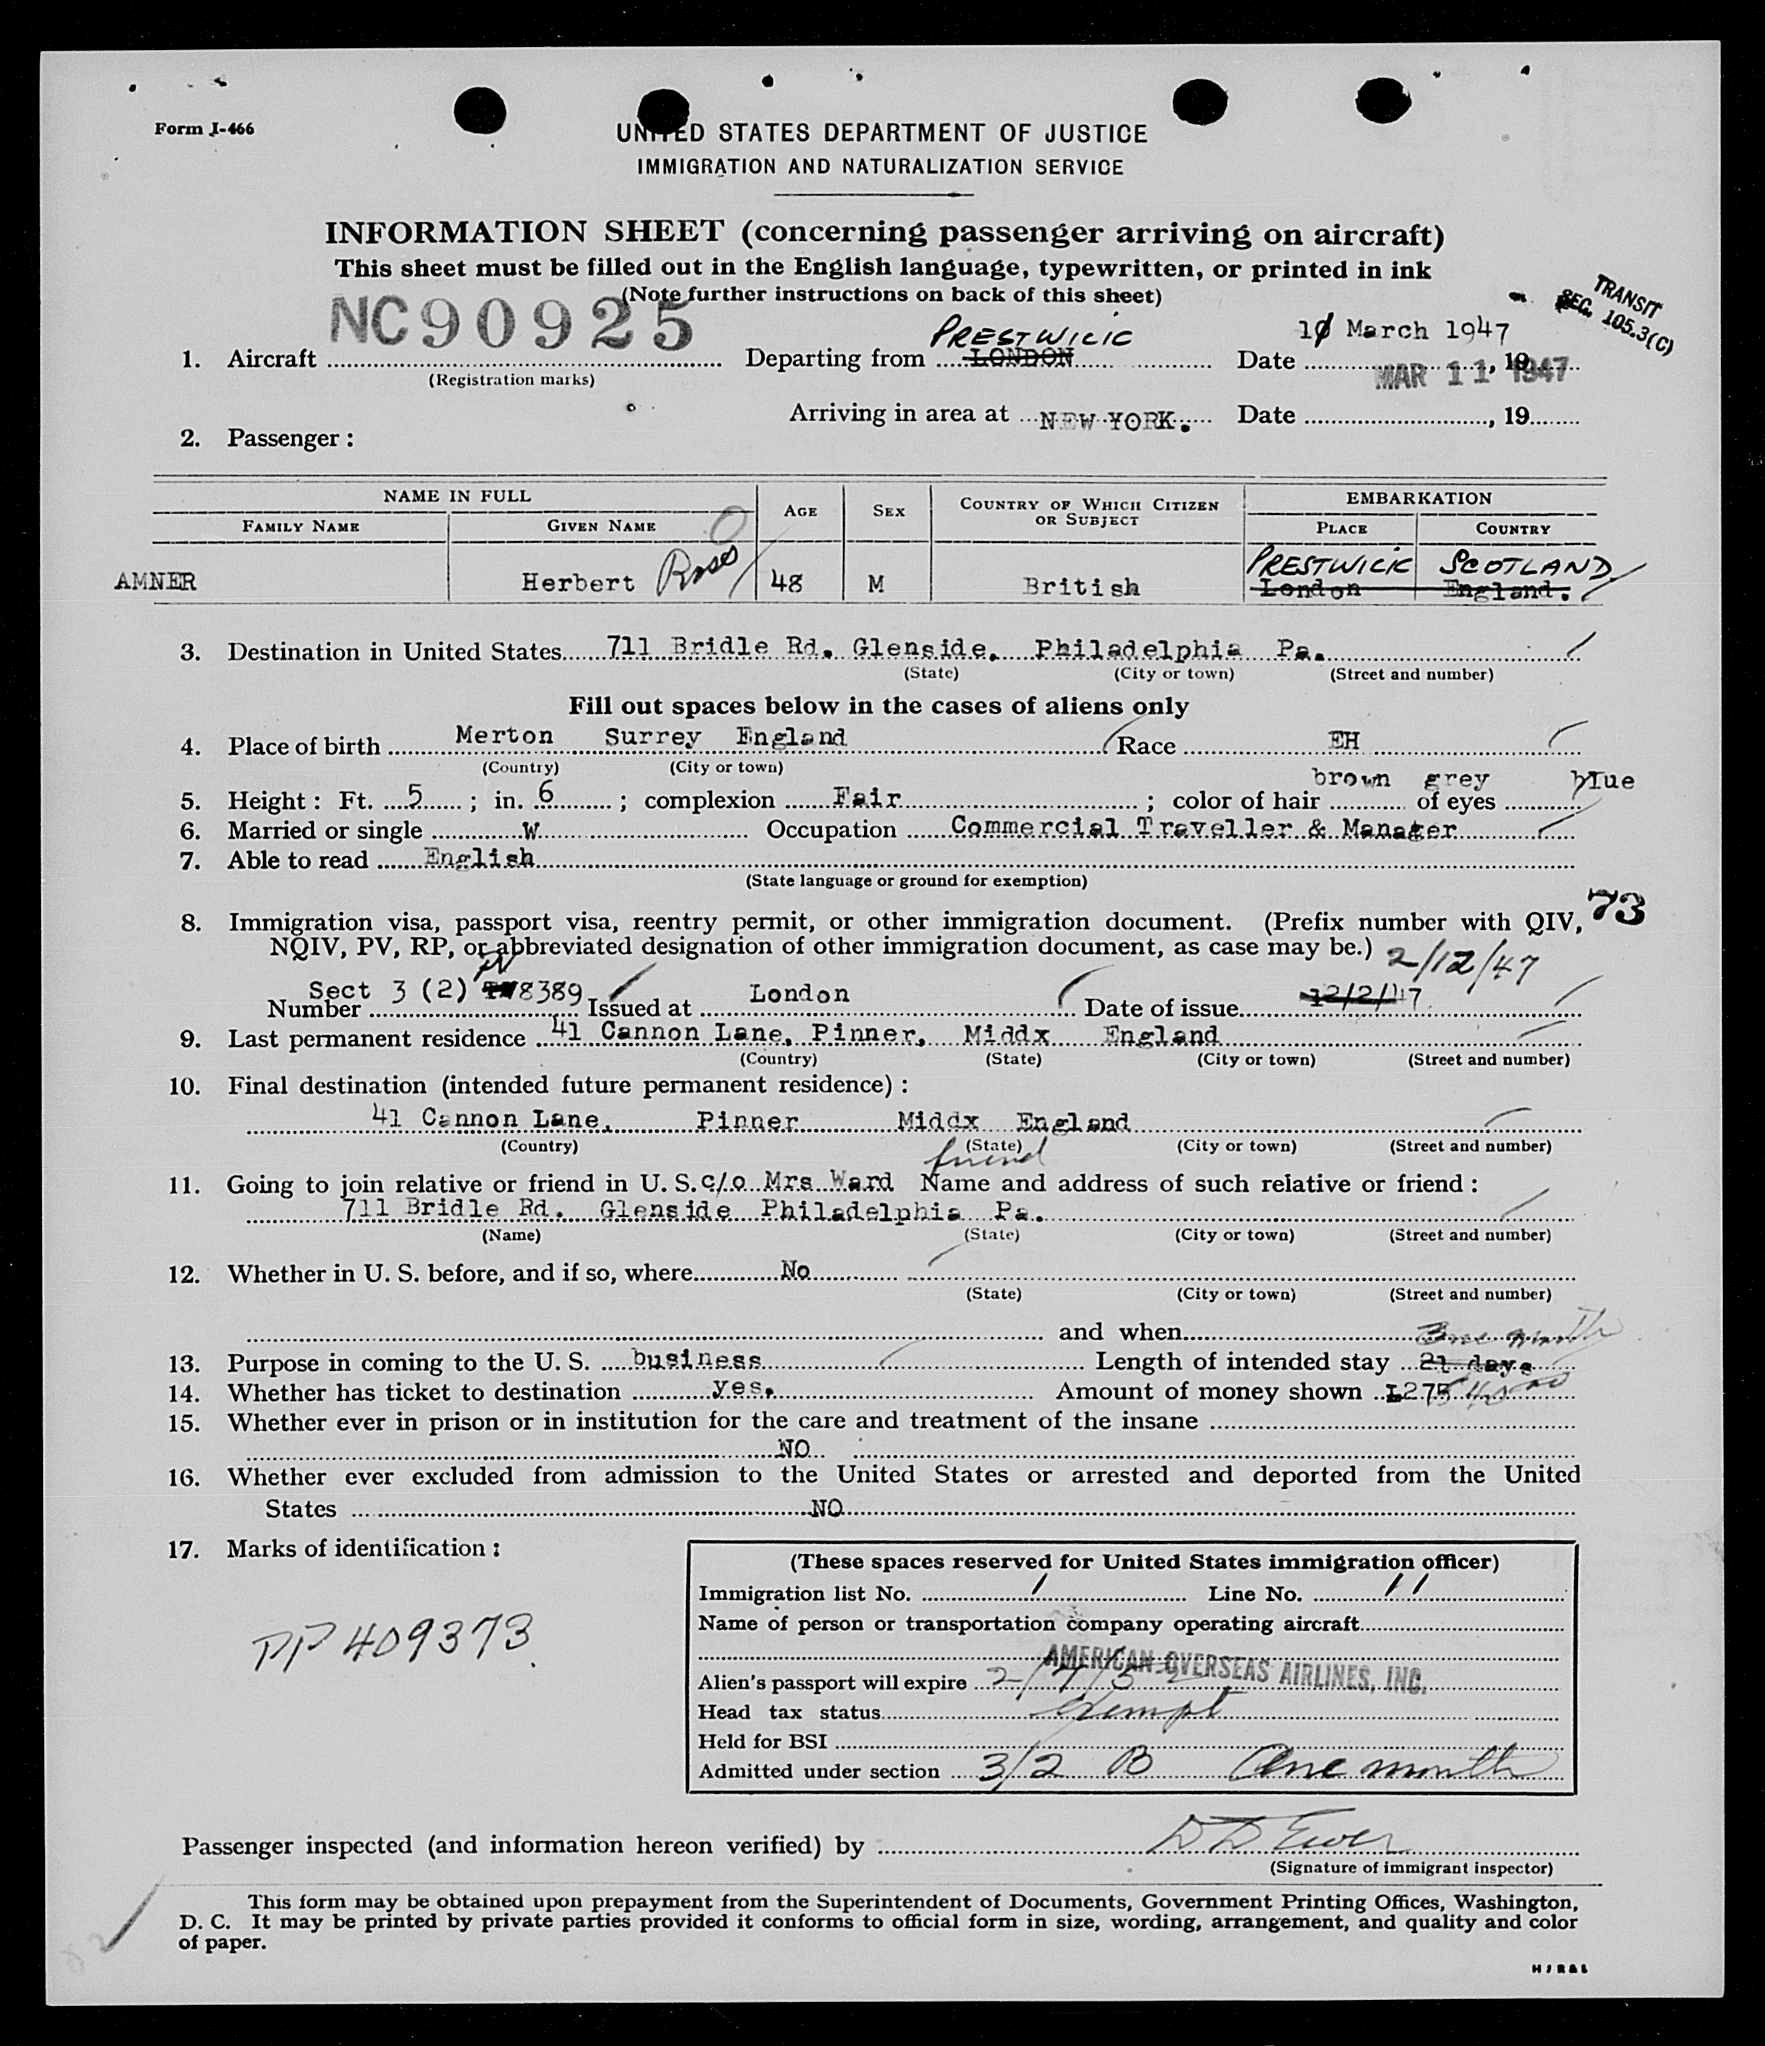 Form I-466
UNITED STATES DEPARTMENT OF JUSTICE
IMMIGRATION AND NATURALIZATION SERVICE
INFORMATION SHEET (concerning passenger arriving on aircraft)
This sheet must be filled out in the English language, typewritten, or printed in ink
(Note further instructions on back of this sheet)
TRANSIT
SEC. 105.3(C)
NC90925
PRESTWICK
10 March 1947
1. Aircraft Departing from LONDON Date , 19
(Registration marks)
MAR 11 1947
Arriving in area at NEW YORK. Date , 19
2. Passenger:
NAME IN FULL AGE SEX COUNTRY OF WHICH CITIZEN OR SUBJECT EMBARKATION
FAMILY NAME GIVEN NAME PLACE COUNTRY
PRESTWICK SCOTLAND
AMNER Herbert Rose 48 M British London England.
3. Destination in United States 711 Bridle Rd. Glenside, Philadelphia Pa.
(State) (City or town) (Street and number)
Fill out spaces below in the cases of aliens only
4. Place of birth Merton Surrey England Race EH
(Country) (City or town)
brown grey blue
5. Height: Ft. 5; in. 6; complexion Fair; color of hair of eyes
6. Married or single W Occupation Commercial Traveller & Manager
7. Able to read English
(State language or ground for exemption)
73
8. Immigration visa, passport visa, reentry permit, or other immigration document. (Prefix number with QIV,
NQIV, PV, RP, or abbreviated designation of other immigration document, as case may be.)
2/12/47
PV
Number Sect 3 (2) 8389 Issued at London Date of issue 12/2/47
9. Last permanent residence 41 Cannon Lane, Pinner, Middx England
(Country) (State) (City or town) (Street and number)
10. Final destination (intended future permanent residence):
41 Cannon Lane, Pinner Middx England
(Country) (State) (City or town) (Street and number)
friend
11. Going to join relative or friend in U. S. c/o Mrs Ward Name and address of such relative or friend:
711 Bridle Rd. Glenside Philadelphia Pa.
(Name) (State) (City or town) (Street and number)
12. Whether in U. S. before, and if so, where No
(State) (City or town) (Street and number)
and when
One month
13. Purpose in coming to the U. S. business Length of intended stay 21 days
14. Whether has ticket to destination yes. Amount of money shown £275
15. Whether ever in prison or in institution for the care and treatment of the insane
NO
16. Whether ever excluded from admission to the United States or arrested and deported from the United
States NO
17. Marks of identification:
PP 409373.
(These spaces reserved for United States immigration officer)
Immigration list No. 1 Line No. 11
Name of person or transportation company operating aircraft
AMERICAN OVERSEAS AIRLINES, INC.
Alien's passport will expire 2/7/52
Head tax status exempt
Held for BSI
Admitted under section 3/2 B One month
Passenger inspected (and information hereon verified) by D D Ewer
(Signature of immigrant inspector)
This form may be obtained upon prepayment from the Superintendent of Documents, Government Printing Offices, Washington,
D. C. It may be printed by private parties provided it conforms to official form in size, wording, arrangement, and quality and color
of paper.